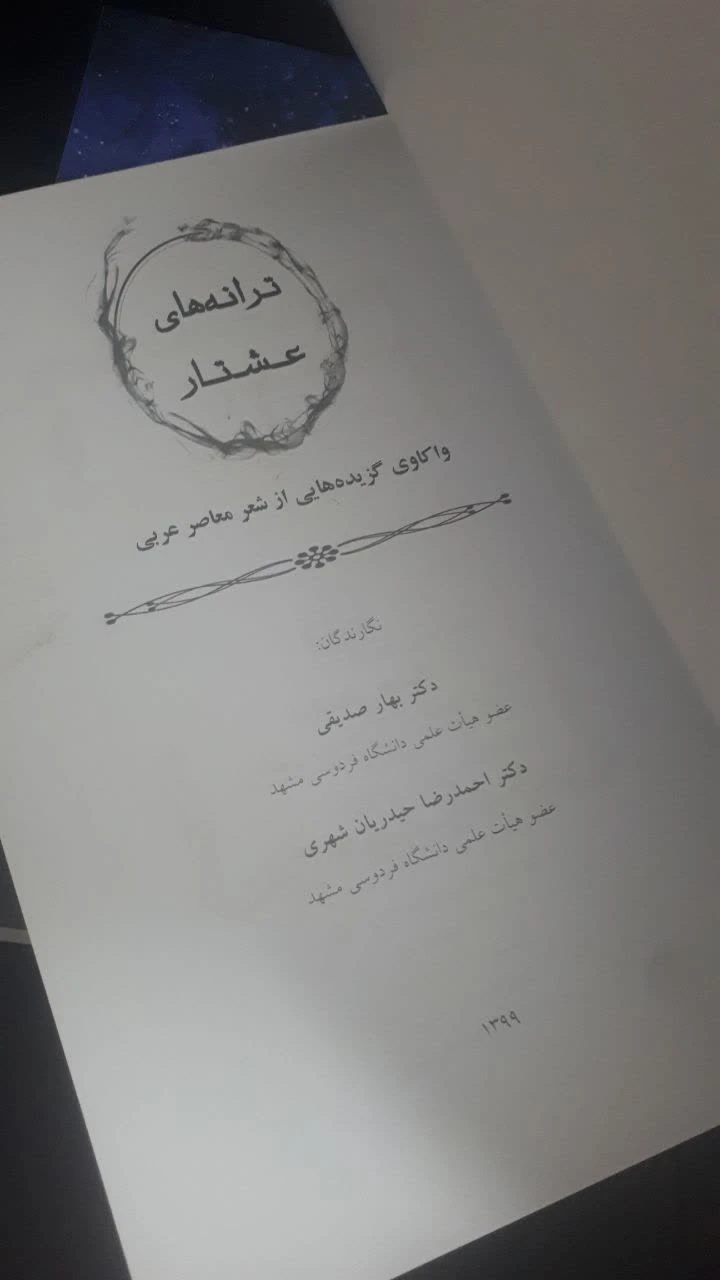 ترانه‌های
عشتار
واکاوی گزیده‌هایی از شعر معاصر عربی
نگارندگان:
دکتر بهار صدیقی
عضو هیأت علمی دانشگاه فردوسی مشهد
دکتر احمدرضا حیدریان شهری
عضو هیأت علمی دانشگاه فردوسی مشهد
۱۳۹۹